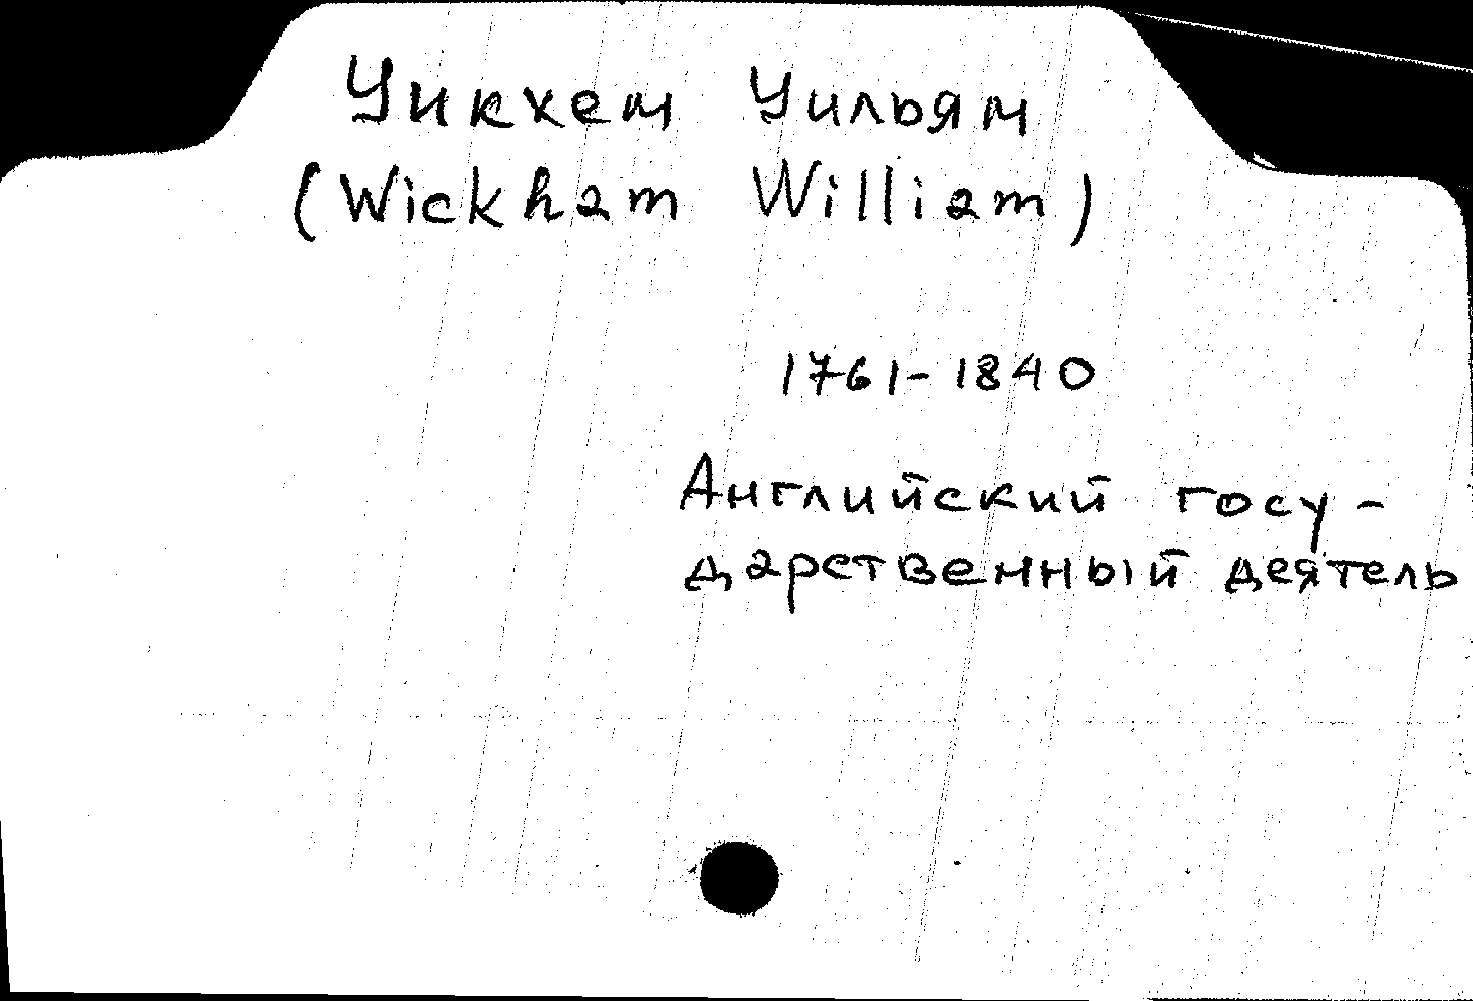 Уикхем Уильям
(Wickham William)
1761-1840
Английский госу-
дарственный деятель